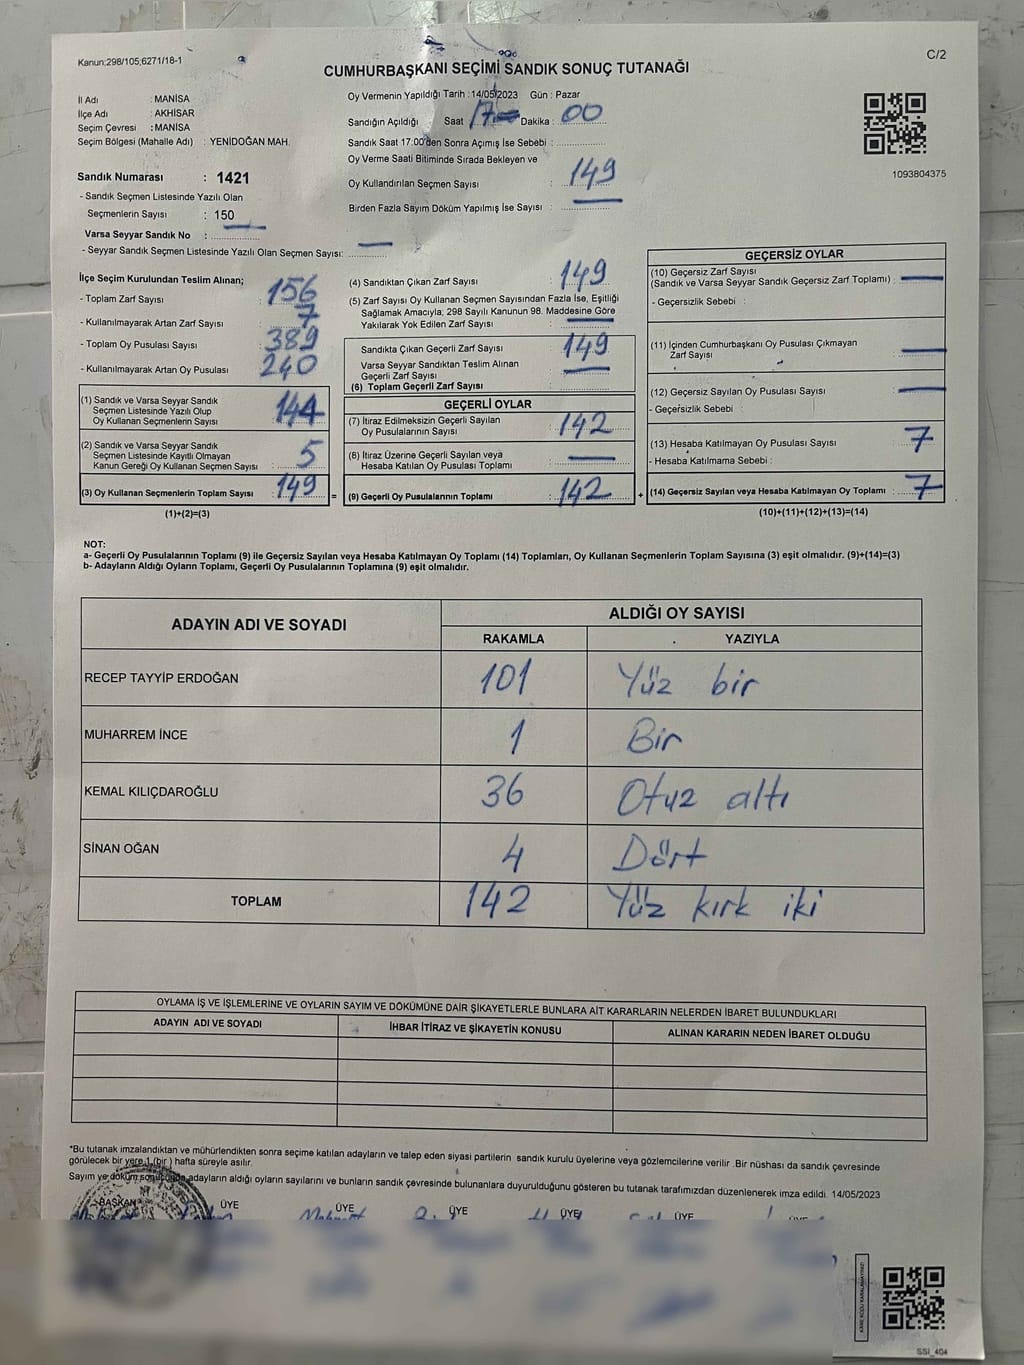 Kanun:298/105;6271/18-1
C/2
CUMHURBAŞKANI SEÇİMİ SANDIK SONUÇ TUTANAĞI
İl Adı : MANİSA
İlçe Adı : AKHİSAR
Seçim Çevresi : MANİSA
Seçim Bölgesi (Mahalle Adı) : YENİDOĞAN MAH.
Sandık Numarası : 1421
- Sandık Seçmen Listesinde Yazılı Olan
Seçmenlerin Sayısı : 150
Varsa Seyyar Sandık No :
- Seyyar Sandık Seçmen Listesinde Yazılı Olan Seçmen Sayısı:
Oy Vermenin Yapıldığı Tarih :14/05/2023 Gün : Pazar
Sandığın Açıldığı Saat 17 Dakika : 00
Sandık Saat 17.00'den Sonra Açımış İse Sebebi :
Oy Verme Saati Bitiminde Sırada Bekleyen ve
Oy Kullandırılan Seçmen Sayısı : 149
Birden Fazla Sayım Döküm Yapılmış İse Sayısı :
1093804375
İlçe Seçim Kurulundan Teslim Alınan;
- Toplam Zarf Sayısı : 156
- Kullanılmayarak Artan Zarf Sayısı : 7
- Toplam Oy Pusulası Sayısı : 389
- Kullanılmayarak Artan Oy Pusulası : 240
(1) Sandık ve Varsa Seyyar Sandık
Seçmen Listesinde Yazılı Olup
Oy Kullanan Seçmenlerin Sayısı : 144
(2) Sandık ve Varsa Seyyar Sandık
Seçmen Listesinde Kayıtlı Olmayan
Kanun Gereği Oy Kullanan Seçmen Sayısı : 5
(3) Oy Kullanan Seçmenlerin Toplam Sayısı : 149 =
(1)+(2)=(3)
(4) Sandıktan Çıkan Zarf Sayısı : 149
(5) Zarf Sayısı Oy Kullanan Seçmen Sayısından Fazla İse, Eşitliği
Sağlamak Amacıyla; 298 Sayılı Kanunun 98. Maddesine Göre
Yakılarak Yok Edilen Zarf Sayısı :
Sandıkta Çıkan Geçerli Zarf Sayısı : 149
Varsa Seyyar Sandıktan Teslim Alınan
Geçerli Zarf Sayısı :
(6) Toplam Geçerli Zarf Sayısı :
GEÇERLİ OYLAR
(7) İtiraz Edilmeksizin Geçerli Sayılan
Oy Pusulalarının Sayısı : 142
(8) İtiraz Üzerine Geçerli Sayılan veya
Hesaba Katılan Oy Pusulası Toplamı :
(9) Geçerli Oy Pusulalarının Toplamı : 142 +
GEÇERSİZ OYLAR
(10) Geçersiz Zarf Sayısı
(Sandık ve Varsa Seyyar Sandık Geçersiz Zarf Toplamı) :
- Geçersizlik Sebebi :
(11) İçinden Cumhurbaşkanı Oy Pusulası Çıkmayan
Zarf Sayısı :
(12) Geçersiz Sayılan Oy Pusulası Sayısı :
- Geçersizlik Sebebi :
(13) Hesaba Katılmayan Oy Pusulası Sayısı : 7
- Hesaba Katılmama Sebebi :
(14) Geçersiz Sayılan veya Hesaba Katılmayan Oy Toplamı : 7
(10)+(11)+(12)+(13)=(14)
NOT:
a- Geçerli Oy Pusulalarının Toplamı (9) ile Geçersiz Sayılan veya Hesaba Katılmayan Oy Toplamı (14) Toplamları, Oy Kullanan Seçmenlerin Toplam Sayısına (3) eşit olmalıdır. (9)+(14)=(3)
b- Adayların Aldığı Oyların Toplamı, Geçerli Oy Pusulalarının Toplamına (9) eşit olmalıdır.
ADAYIN ADI VE SOYADI ALDIĞI OY SAYISI
RAKAMLA YAZIYLA
RECEP TAYYİP ERDOĞAN 101 Yüz bir
MUHARREM İNCE 1 Bir
KEMAL KILIÇDAROĞLU 36 Otuz altı
SİNAN OĞAN 4 Dört
TOPLAM 142 Yüz kırk iki
OYLAMA İŞ VE İŞLEMLERİNE VE OYLARIN SAYIM VE DÖKÜMÜNE DAİR ŞİKAYETLERLE BUNLARA AİT KARARLARIN NELERDEN İBARET BULUNDUKLARI
ADAYIN ADI VE SOYADI İHBAR İTİRAZ VE ŞİKAYETİN KONUSU ALINAN KARARIN NEDEN İBARET OLDUĞU
*Bu tutanak imzalandıktan ve mühürlendikten sonra seçime katılan adayların ve talep eden siyasi partilerin sandık kurulu üyelerine veya gözlemcilerine verilir .Bir nüshası da sandık çevresinde
görülecek bir yere 1 (bir ) hafta süreyle asılır.
Sayım ve döküm sonucunda adayların aldığı oyların sayılarını ve bunların sandık çevresinde bulunanlara duyurulduğunu gösteren bu tutanak tarafımızdan düzenlenerek imza edildi. 14/05/2023
BAŞKAN ÜYE ÜYE ÜYE ÜYE ÜYE ÜYE
SSİ_404